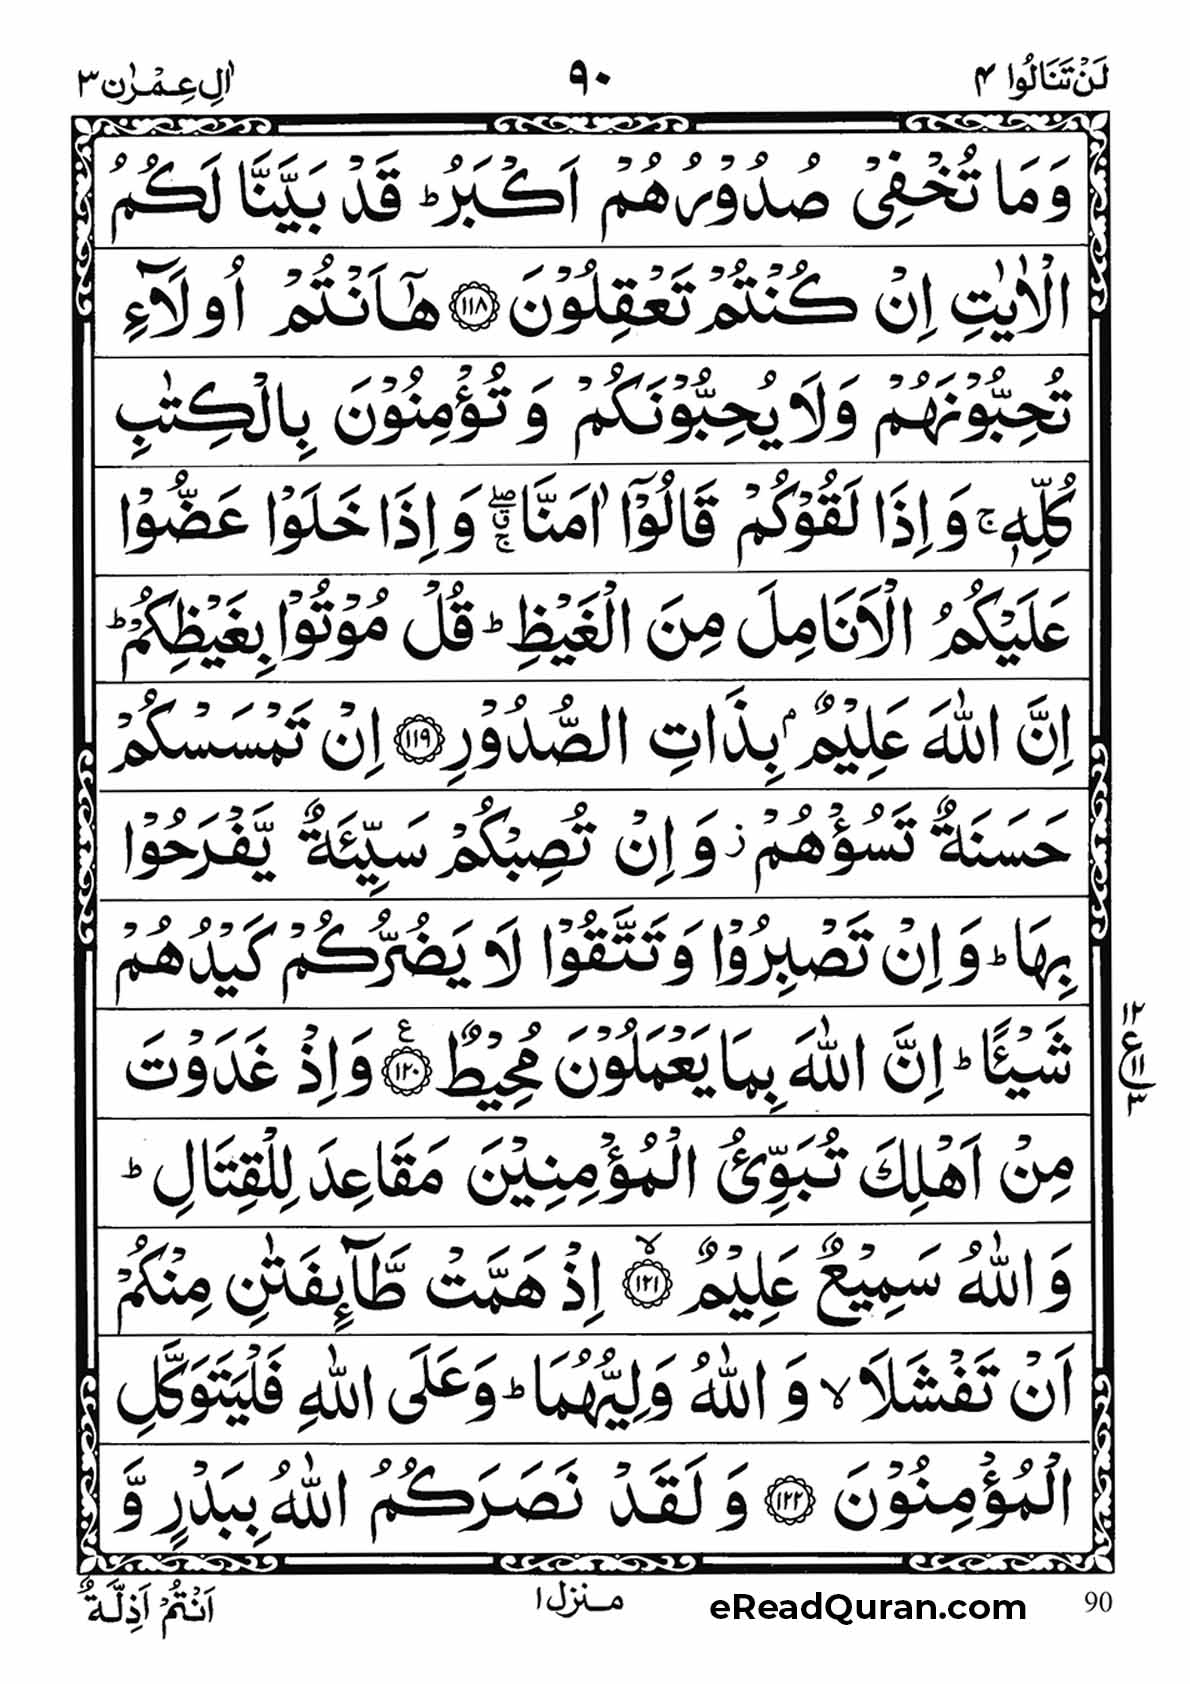 لَنْ تَنَالُوا ۴ ۹۰ اٰلِ عِمْرٰن ۳
وَمَا تُخْفِیْ صُدُوْرُهُمْ اَكْبَرُ ؕ قَدْ بَیَّنَّا لَكُمُ
الْاٰیٰتِ اِنْ كُنْتُمْ تَعْقِلُوْنَ ﴿۱۱۸﴾ هٰۤاَنْتُمْ اُولَآءِ
تُحِبُّوْنَهُمْ وَلَا یُحِبُّوْنَكُمْ وَ تُؤْمِنُوْنَ بِالْكِتٰبِ
كُلِّهٖ ۚ وَ اِذَا لَقُوْكُمْ قَالُوْۤا اٰمَنَّا ۖۗۚ وَ اِذَا خَلَوْا عَضُّوْا
عَلَیْكُمُ الْاَنَامِلَ مِنَ الْغَیْظِ ؕ قُلْ مُوْتُوْا بِغَیْظِكُمْ ؕ
اِنَّ اللّٰهَ عَلِیْمٌۢ بِذَاتِ الصُّدُوْرِ ﴿۱۱۹﴾ اِنْ تَمْسَسْكُمْ
حَسَنَةٌ تَسُؤْهُمْ ؗ وَ اِنْ تُصِبْكُمْ سَیِّئَةٌ یَّفْرَحُوْا
بِهَا ؕ وَ اِنْ تَصْبِرُوْا وَ تَتَّقُوْا لَا یَضُرُّكُمْ كَیْدُهُمْ
شَیْـًٔا ؕ اِنَّ اللّٰهَ بِمَا یَعْمَلُوْنَ مُحِیْطٌ ﴿۱۲۰﴾ ع وَاِذْ غَدَوْتَ
۱۲
ع ۱۱
۳
مِنْ اَهْلِكَ تُبَوِّئُ الْمُؤْمِنِیْنَ مَقَاعِدَ لِلْقِتَالِ ؕ
وَ اللّٰهُ سَمِیْعٌ عَلِیْمٌ ﴿۱۲۱﴾ ۙ اِذْ هَمَّتْ طَّآئِفَتٰنِ مِنْكُمْ
اَنْ تَفْشَلَا ۙ وَ اللّٰهُ وَلِیُّهُمَا ؕ وَعَلَی اللّٰهِ فَلْیَتَوَكَّلِ
الْمُؤْمِنُوْنَ ﴿۱۲۲﴾ وَ لَقَدْ نَصَرَكُمُ اللّٰهُ بِبَدْرٍ وَّ
اَنْتُمْ اَذِلَّةٌ
منزل ۱ eReadQuran.com 90